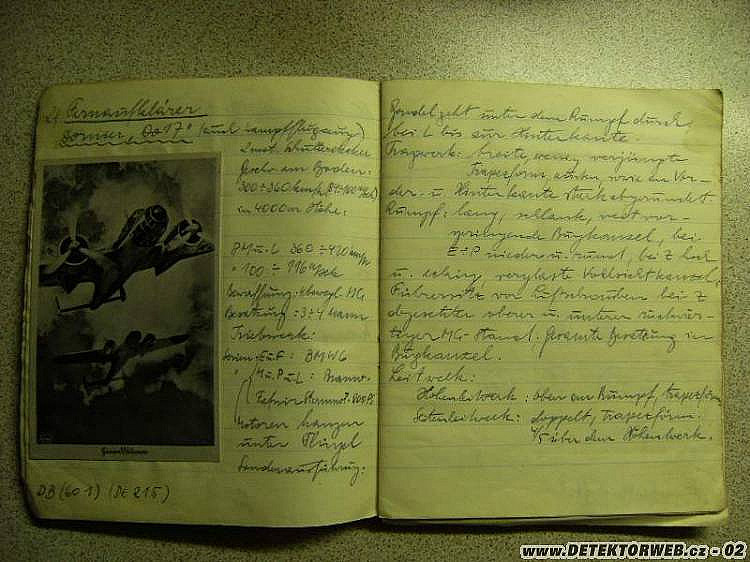 Fernaufklärer
Dornier Do 17. (auch Kampfflugzeug)
2mot. Schulterdecker
Geschw. am Boden:
300÷360 km/h
in 4000 m Höhe:
M u. L
Bewaffnung: bewegl. MG
Besatzung: 3÷4 Mann
Triebwerk:
Serien E u. F: BMW 6
M u. P u. L: Bramo.
Motoren hängen
unter Flügel
Sonderausführung:
DB (601) (DE 215)
geht unter dem Rumpf durch,
bei L bis zur Hinterkante.
Tragwerk: breite, wenig verjüngte
Trapezform, an der Vor-
der- u. Hinterkante stark abgerundet
Rumpf: lang, schlank, weit vor-
springende Bugkanzel, bei
E÷P nieder u. rund, bei Z hoch
u. eckig, verglaste Vollsichtkanzel,
Führersitz vor Luftschrauben bei Z
abgesetzter oberer u. unterer rückwär-
tiger MG-Stand. Gesamte Besatzung in
Bugkanzel.
Leitwerk:
Höhenleitwerk: oben am Rumpf, trapezform.
Seitenleitwerk: doppelt, trapezform.
über dem Höhenleitwerk.
www.DETEKTORWEB.cz - 02